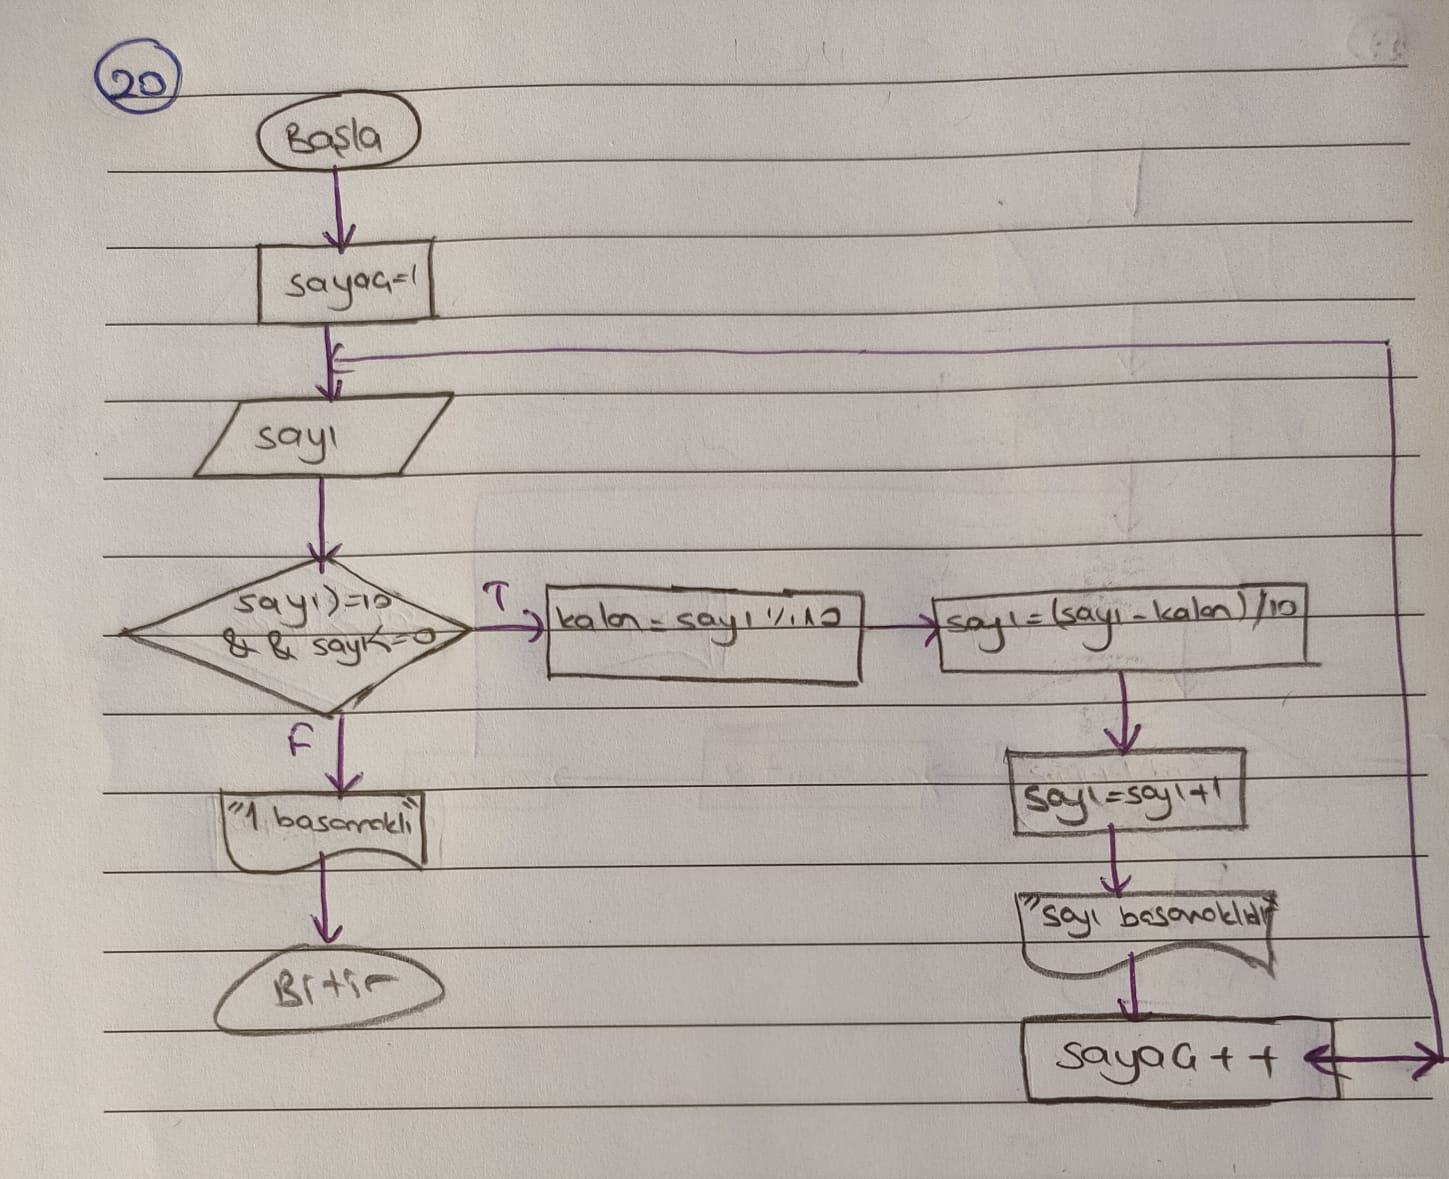 20
Başla
sayaç=1
sayı
sayı>=10
&& sayı<=0
T
kalan = sayı % 10
sayı=(sayı-kalan)/10
F
sayı=sayı+1
"1 basamaklı"
"sayı basamaklıdır"
Bitir
sayaç++